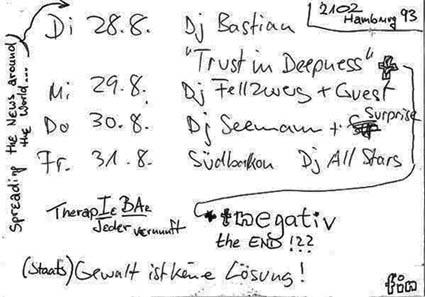 Di 28.8. Dj Bastian
2102 Hamburg 93
"Trust in Deepness"
Mi 29.8. Dj Fellzwerg + Guest
Do 30.8. Dj Seemann + Surprise
Fr. 31.8. Südbalkon Dj All Stars
Spreading the News around
the World...
TherapIE BAR
Jeder Vernunft
negativ
the END !??
(Staats)Gewalt ist keine Lösung!
fin